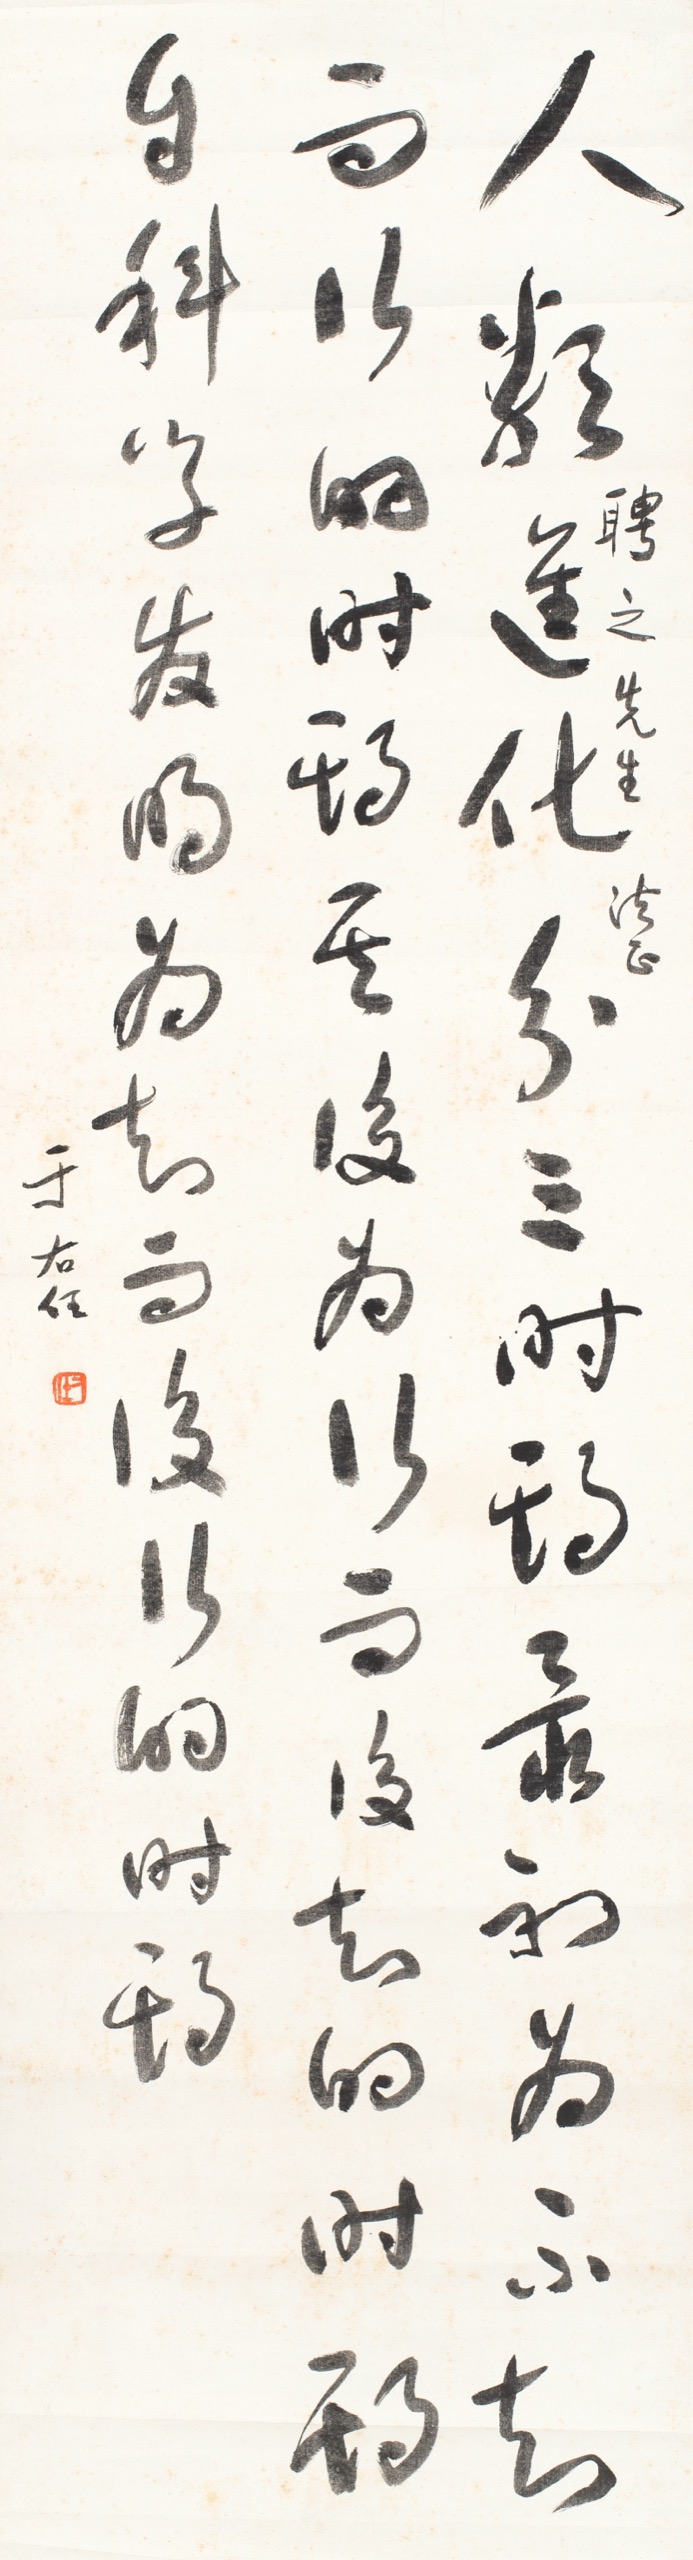 人類進化分三時期最初為不知
聘之先生法正
而行的時期其後為行而後知的時期
自科學發明為知而後行的時期
于右任